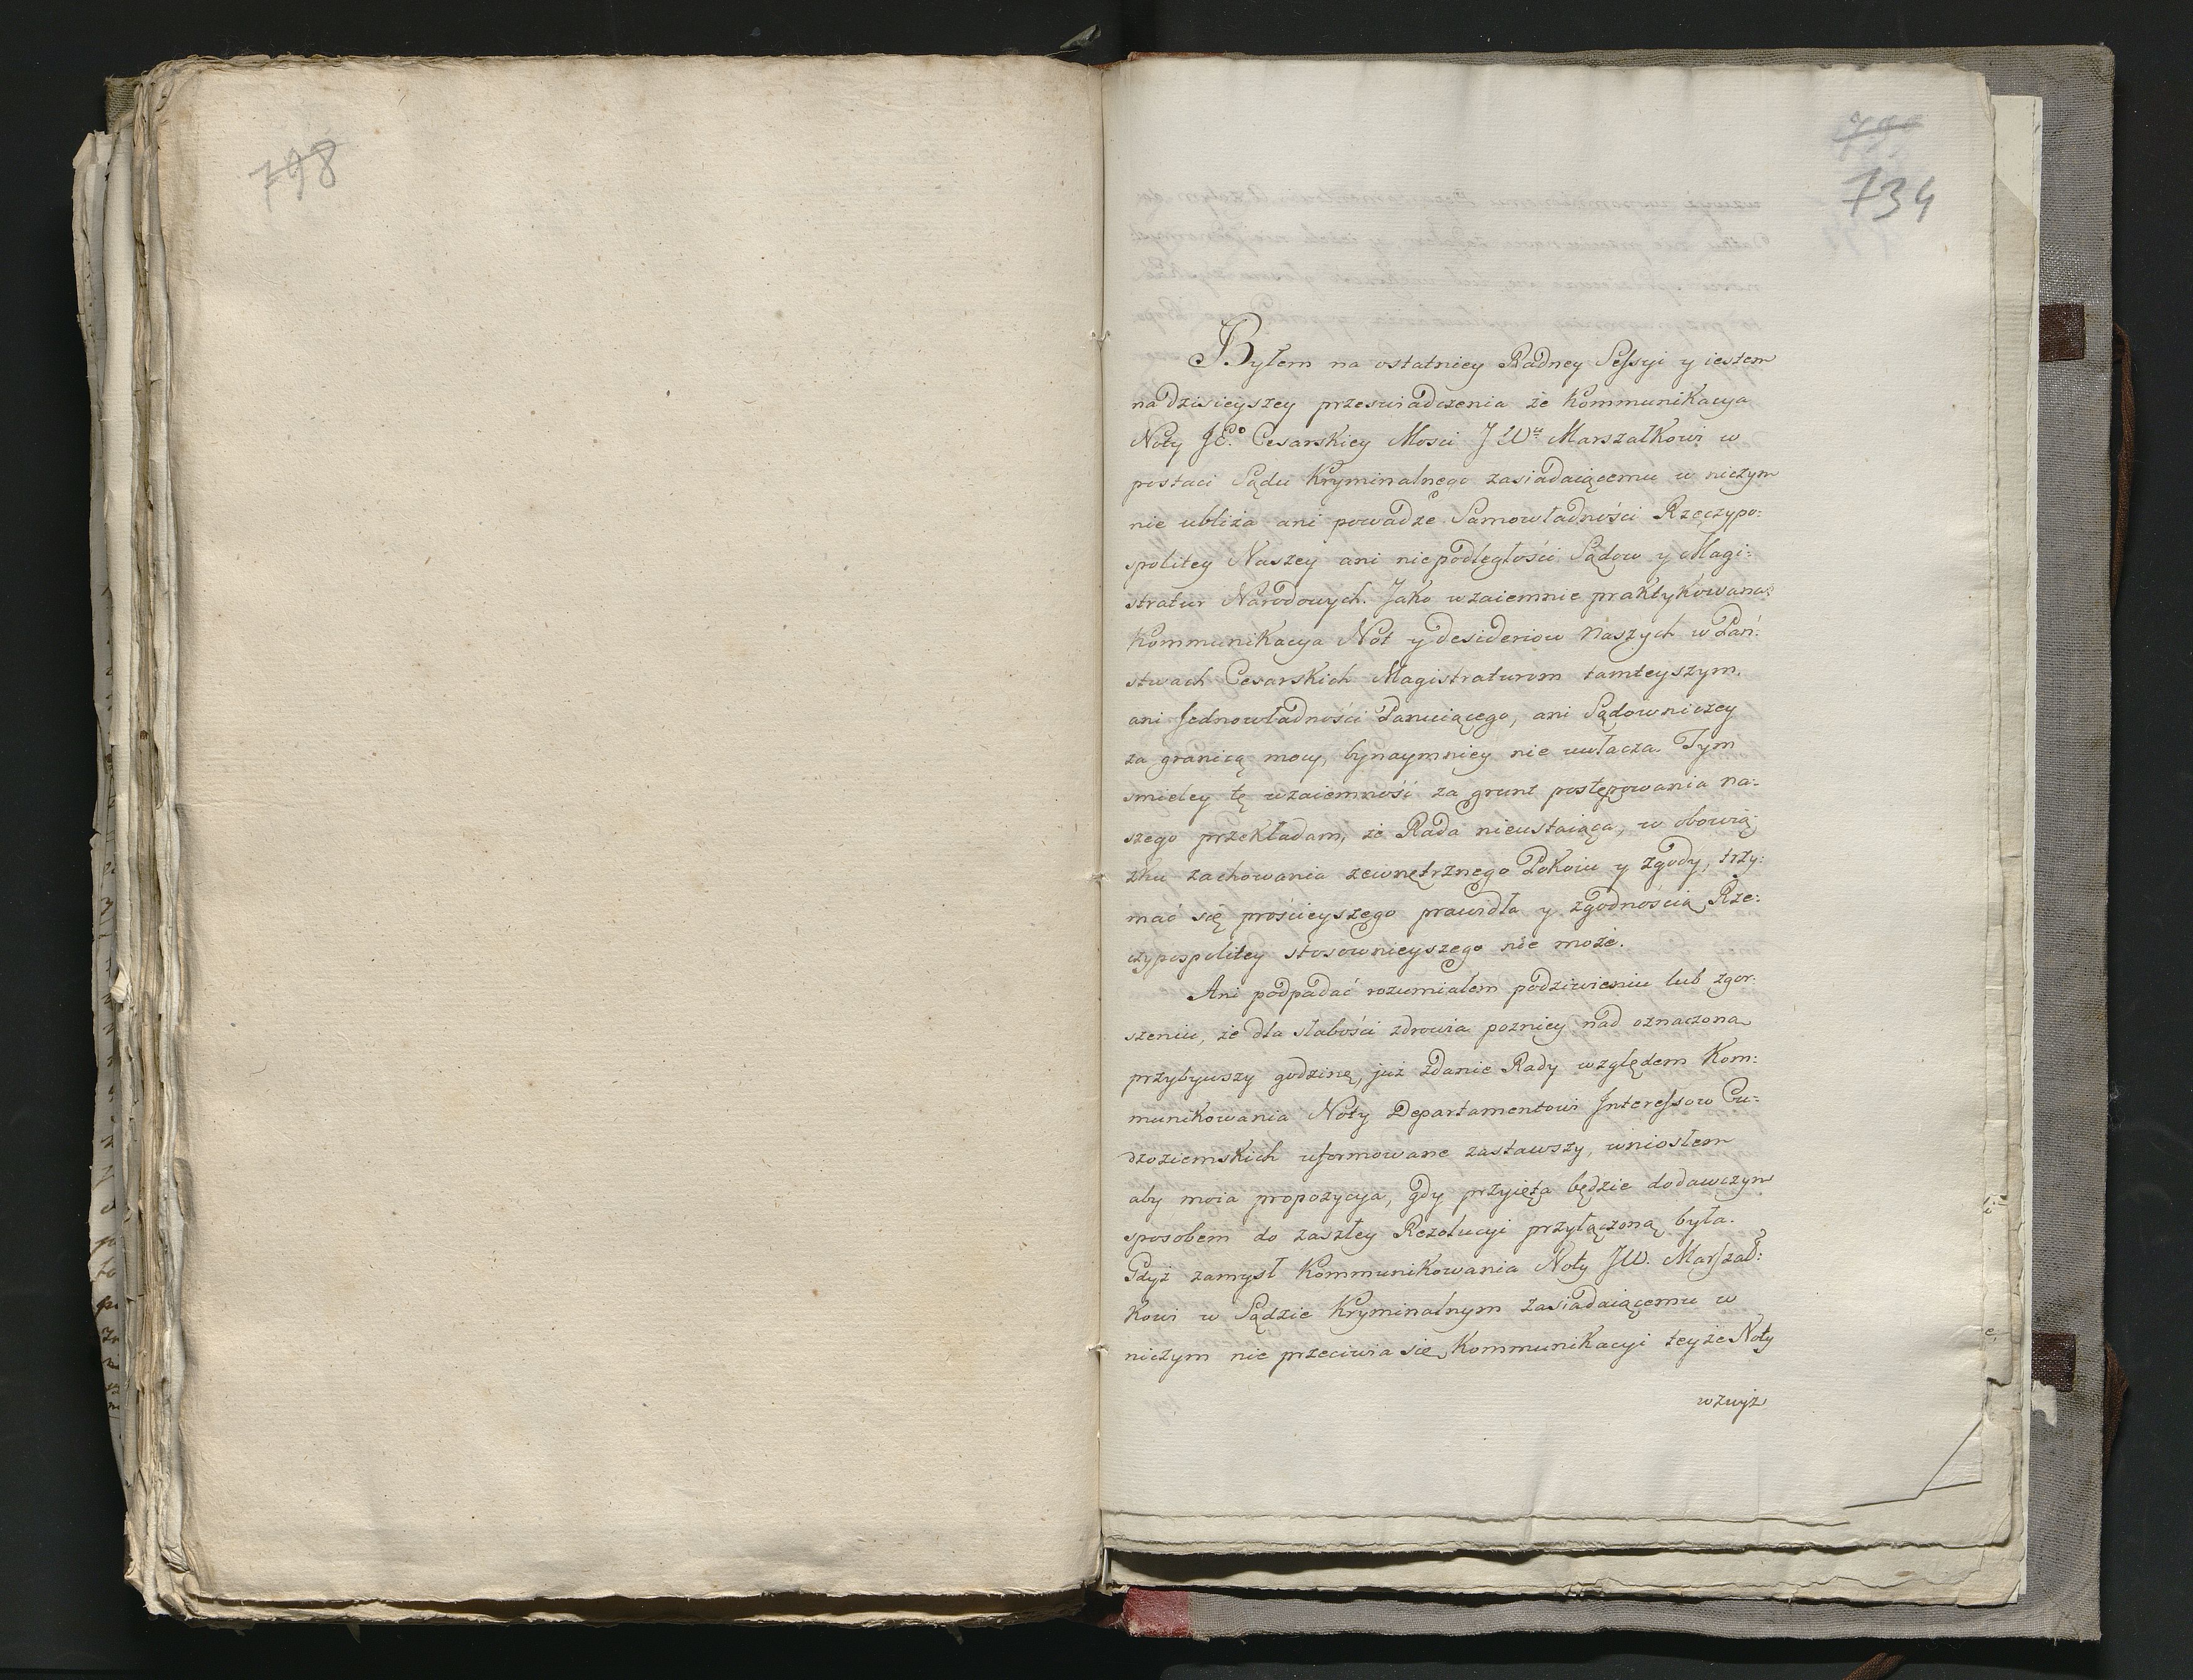 798
799
734
Byłem na ostatniey Radney Sessyi y iestem
na dzisieyszey przeswiadczenia że Kommunikacya
Noty JC.º Cesarskiey Mosci J Wu Marszałkowi w
postaci Sądu Kryminalnego zasiadaiącemu w niczym
nie ubliża ani powadze Samowładności Rzeczypo:
spolitey Naszey ani niepodległości Sądow y Magi:
stratur Narodowych. Jako wzaiemnie praktykowana
Kommunikacya Not y desideriow Naszych w Pań:
stwach Cesarskich Magistraturom tamteyszym,
ani Jednowładności Panuiącego, ani Sądowniczey
za granicą mocy, bynaymniey nie uwłacza. Tym
smieley tę wzaiemność za grunt postępowania na:
szego przekładam, że Rada nieustaiąca, w obowią
zku zachowania zewnętrznego Pokoiu y zgody, trzy:
mać się prościeyszego prawidła y zgodnością Rze:
czypospolitey stosownieyszego nie może.
Ani podpadać rozumiałem podziwieniu lub zgor:
szeniu, że dla słabości zdrowia pozniey nad oznaczoną
przybywszy godzinę, już zdanie Rady względem Kom:
munikowania Noty Departamentowi Interessow Cu:
dzoziemskich uformowane zastawszy, wniosłem
aby moia propozycya, gdy przyięta będzie dodawczym
sposobem do zaszłey Rezolucyi przyłączoną była.
Gdyż zamysł Kommunikowania Noty JW. Marszał:
kowi w Sądzie Kryminalnym zasiadaiącemu w
niczym nie przeciwia się Kommunikacyi teyże Noty
wzwyż